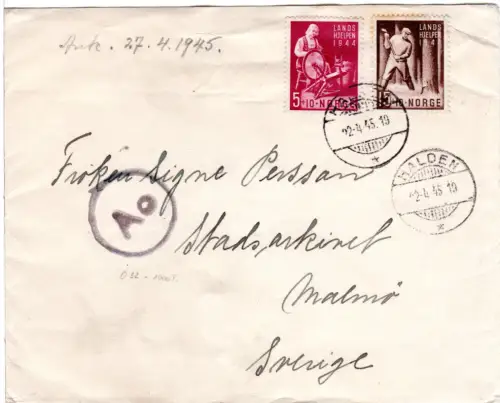 Ank. 27.4.1945.
LANDS
HJELPEN
1944
5+10-NORGE
LANDS
HJELPEN
194
15+10-NORGE
22-4 45. 19
HALDEN
22-4 45 19
Fröken Signe Persson
Ao
Stadsarkivet
Malmö
Sverige